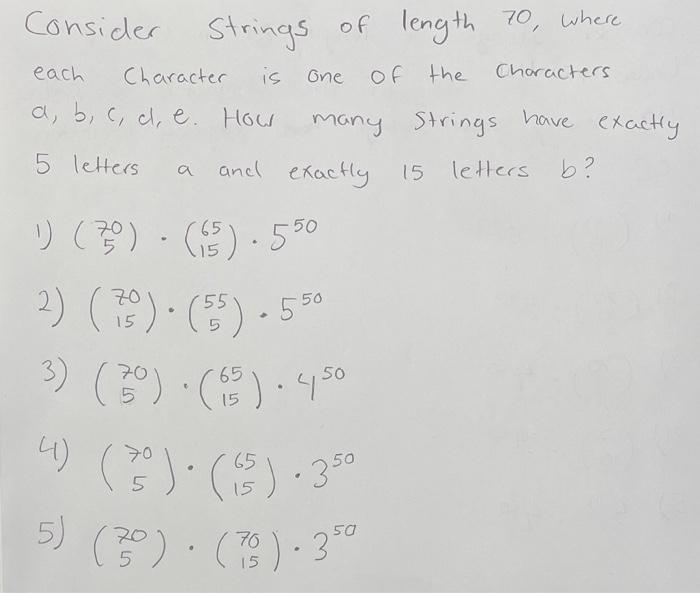 Consider Strings of length 70, where
each Character is one of the Characters
a, b, c, d, e. How many Strings have exactly
5 letters a and exactly 15 letters b?
1) (70 5) · (65 15) · 5^50
2) (70 15) · (55 5) · 5^50
3) (70 5) · (65 15) · 4^50
4) (70 5) · (65 15) · 3^50
5) (70 5) · (70 15) · 3^50